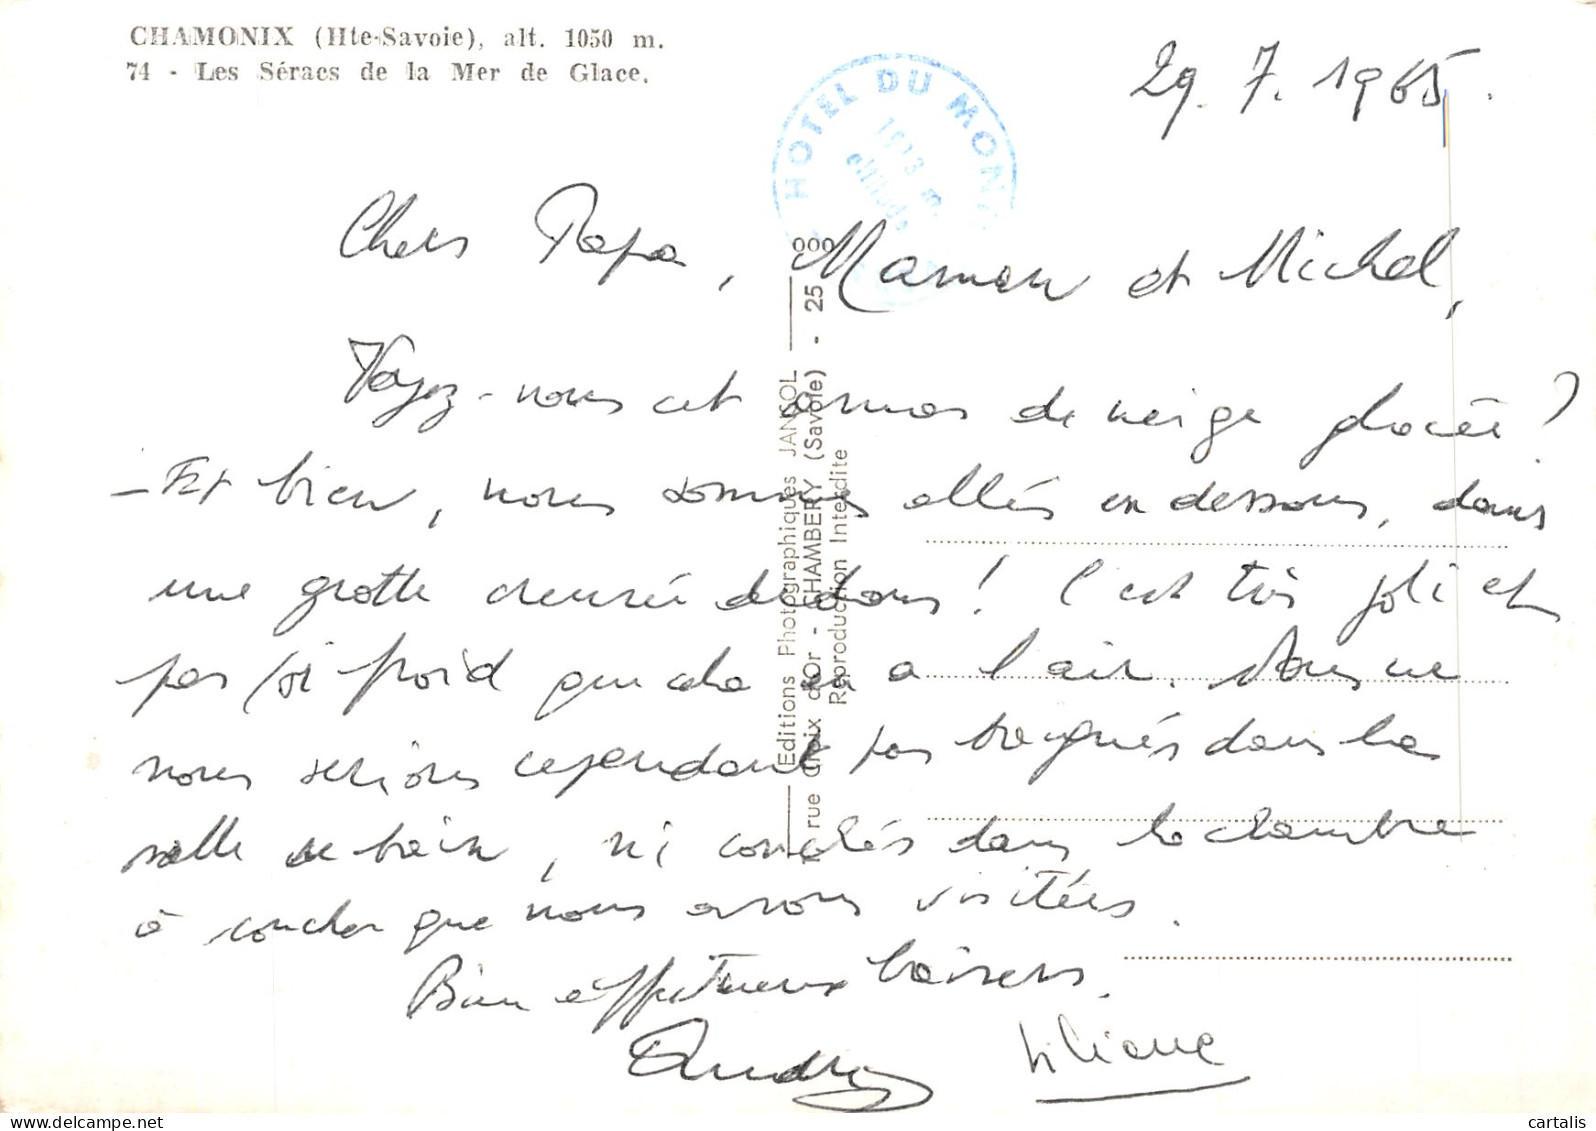 CHAMONIX (Hte-Savoie), alt. 1050 m.
74 - Les Séracs de la Mer de Glace.
HOTEL DU MON
1913 m
altitude
29.7.1965.
Chers Papa, Maman et Michel,
Voyez-nous cet amas de neige glacée?
- Et bien, nous sommes allés en dessous, dans
une grotte creusée dedans! C'est très joli et
pas si froid que cela en a l'air. Nous ne
nous serions cependant pas baignés dans la
salle de bain, ni couchés dans la chambre
à coucher que nous avons visitées.
Bien affectueux baisers.
André Liliane
Editions Photographiques JANSOL
rue Croix d'Or - CHAMBERY (Savoie) - 25 000
Reproduction Interdite
cartalis